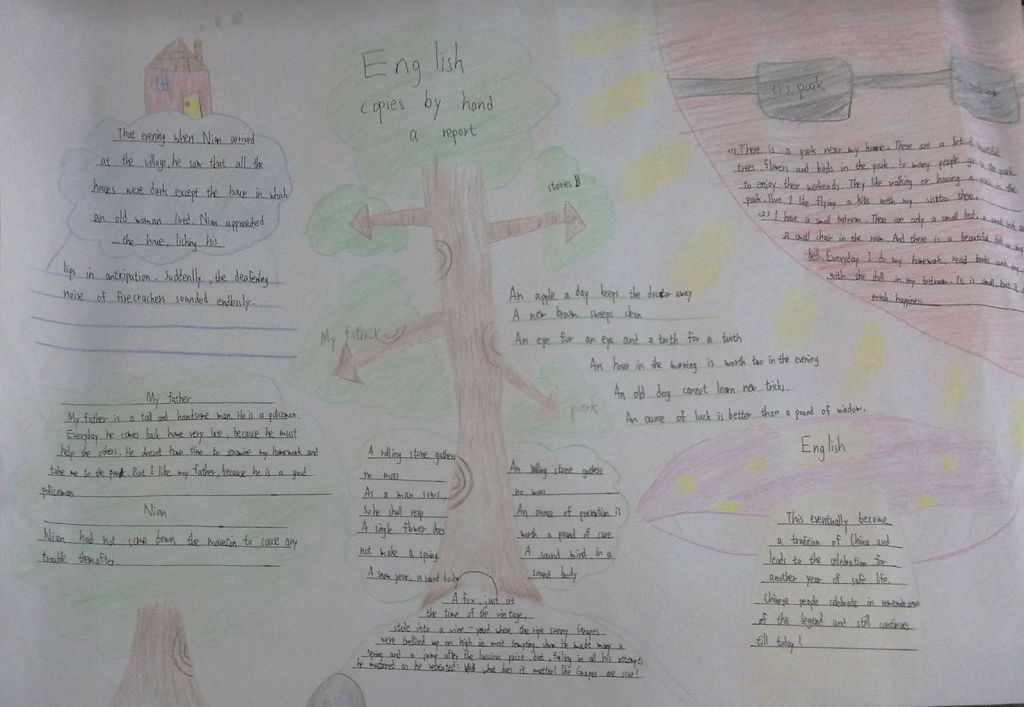 English
copies by hand
a report
That evening when Nian arrived
at the village, he saw that all the
houses were dark except the house in which
an old woman lived. Nian approached
the house, licking his
lips in anticipation. Suddenlly, the deafening
noise of firecrackers sounded endlessly.
My father
My father is a tall and handsome man. He is a policeman.
Everyday he comes back home very late, because he must
help the others. He doesn't have time to examine my homework and
take me to the park. But I like my father, because he is a good
policeman
Nian
Nian had not come down the mountin to cause any
trouble thereafter.
stories B
My
park
An apple a day keeps the doctor away
A new broom sweeps clean
An eye for an eye and a tooth for a tooth
An hour in the morning is worth two in the evening
An old dog cannot learn new tricks.
An ounce of luck is better than a pound of wisdom.
A rolling stone gathers
no moss
As a man sows,
so he shall reap
A single flower does
not make a spring
A snow year, a
An rolling stone gathers
no moss
An ounce of prevention is
worth a pound of cure
A sound mind in a
sound body
A fox, just at
the time of the vintage,
stole into a wine-yard where the ripe sunny Grapes
were trellised up on high in most tempting show. He made many a
spring and a jump after the luscious prize, but, failing in all his attempts
he muttered as he retreated: Well what does it matter! The Grapes are sour!
park
(1) There is a park near my home. There are a lot of beautiful
trees, flowers and birds in the park. So many people go to the park
to enjoy their weekends. They like walking or having a in the
park. But I like flying a kite with my sister there.
(2) I have a small bedroom. There are only a small bed, a
a small chair in the room. And there is a beautiful
bed. Everyday I do my homework, read books and
with the doll in my bedroom. It is small, but I
much happiness
English
This eventually become
a tradition of China and
leads to the celebration for
another year of safe life.
Chinese people celebrate in remembrance
of the legend and still continues
till today!